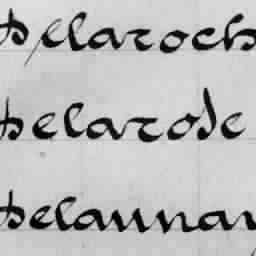 Delaroch
Delarose
Delaunay